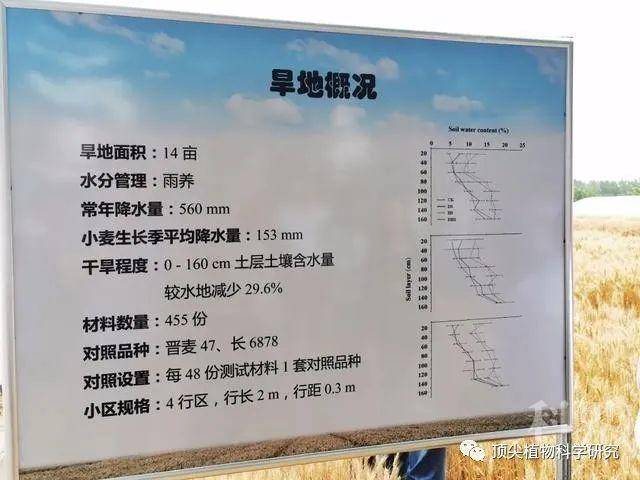 旱地概况
旱地面积：14 亩
水分管理：雨养
常年降水量：560 mm
小麦生长季平均降水量：153 mm
干旱程度：0 - 160 cm 土层土壤含水量
较水地减少 29.6%
材料数量：455 份
对照品种：晋麦 47、长 6878
对照设置：每 48 份测试材料 1 套对照品种
小区规格：4 行区，行长 2 m，行距 0.3 m
Soil water content (%)
0 5 10 15 20 25
20
40
60
80
100
120
140
160
CK
20
40
60
80
100
120
140
160
Soil layer (cm)
20
40
60
80
100
120
140
160
顶尖植物科学研究